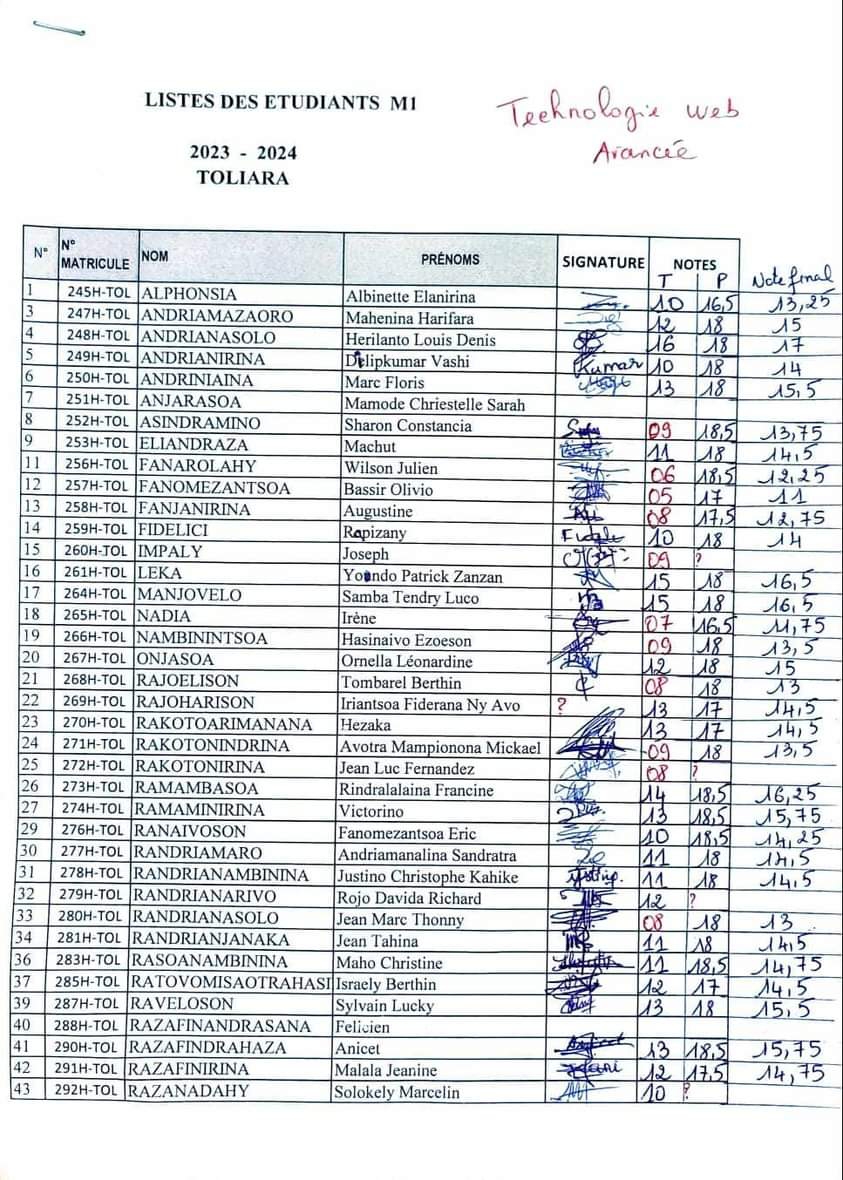 LISTES DES ETUDIANTS M1
Technologie web
Avancée
2023 - 2024
TOLIARA
N° N° MATRICULE NOM PRÉNOMS SIGNATURE NOTES T P Note final
1 245H-TOL ALPHONSIA Albinette Elanirina 10 16,5 13,25
3 247H-TOL ANDRIAMAZAORO Mahenina Harifara 12 18 15
4 248H-TOL ANDRIANASOLO Herilanto Louis Denis 16 18 17
5 249H-TOL ANDRIANIRINA Dilipkumar Vashi Kumar 10 18 14
6 250H-TOL ANDRINIAINA Marc Floris 13 18 15,5
7 251H-TOL ANJARASOA Mamode Chriestelle Sarah
8 252H-TOL ASINDRAMINO Sharon Constancia 09 18,5 13,75
9 253H-TOL ELIANDRAZA Machut 11 18 14,5
11 256H-TOL FANAROLAHY Wilson Julien 06 18,5 12,25
12 257H-TOL FANOMEZANTSOA Bassir Olivio 05 17 11
13 258H-TOL FANJANIRINA Augustine 08 17,5 12,75
14 259H-TOL FIDELICI Rapizany 10 18 14
15 260H-TOL IMPALY Joseph 09 ?
16 261H-TOL LEKA Yoando Patrick Zanzan 15 18 16,5
17 264H-TOL MANJOVELO Samba Tendry Luco 15 18 16,5
18 265H-TOL NADIA Irène 07 16,5 11,75
19 266H-TOL NAMBININTSOA Hasinaivo Ezoeson 09 18 13,5
20 267H-TOL ONJASOA Ornella Léonardine 12 18 15
21 268H-TOL RAJOELISON Tombarel Berthin 08 18 13
22 269H-TOL RAJOHARISON Iriantsoa Fiderana Ny Avo ? 13 17 14,5
23 270H-TOL RAKOTOARIMANANA Hezaka 13 17 14,5
24 271H-TOL RAKOTONINDRINA Avotra Mampionona Mickael 09 18 13,5
25 272H-TOL RAKOTONIRINA Jean Luc Fernandez 08 ?
26 273H-TOL RAMAMBASOA Rindralalaina Francine 14 18,5 16,25
27 274H-TOL RAMAMINIRINA Victorino 13 18,5 15,75
29 276H-TOL RANAIVOSON Fanomezantsoa Eric 10 18,5 14,25
30 277H-TOL RANDRIAMARO Andriamanalina Sandratra 11 18 14,5
31 278H-TOL RANDRIANAMBININA Justino Christophe Kahike 11 18 14,5
32 279H-TOL RANDRIANARIVO Rojo Davida Richard 12 ?
33 280H-TOL RANDRIANASOLO Jean Marc Thonny 08 18 13
34 281H-TOL RANDRIANJANAKA Jean Tahina 11 18 14,5
36 283H-TOL RASOANAMBININA Maho Christine 11 18,5 14,75
37 285H-TOL RATOVOMISAOTRAHASI Israely Berthin 12 17 14,5
39 287H-TOL RAVELOSON Sylvain Lucky 13 18 15,5
40 288H-TOL RAZAFINANDRASANA Felicien
41 290H-TOL RAZAFINDRAHAZA Anicet 13 18,5 15,75
42 291H-TOL RAZAFINIRINA Malala Jeanine 12 17,5 14,75
43 292H-TOL RAZANADAHY Solokely Marcelin 10 ?